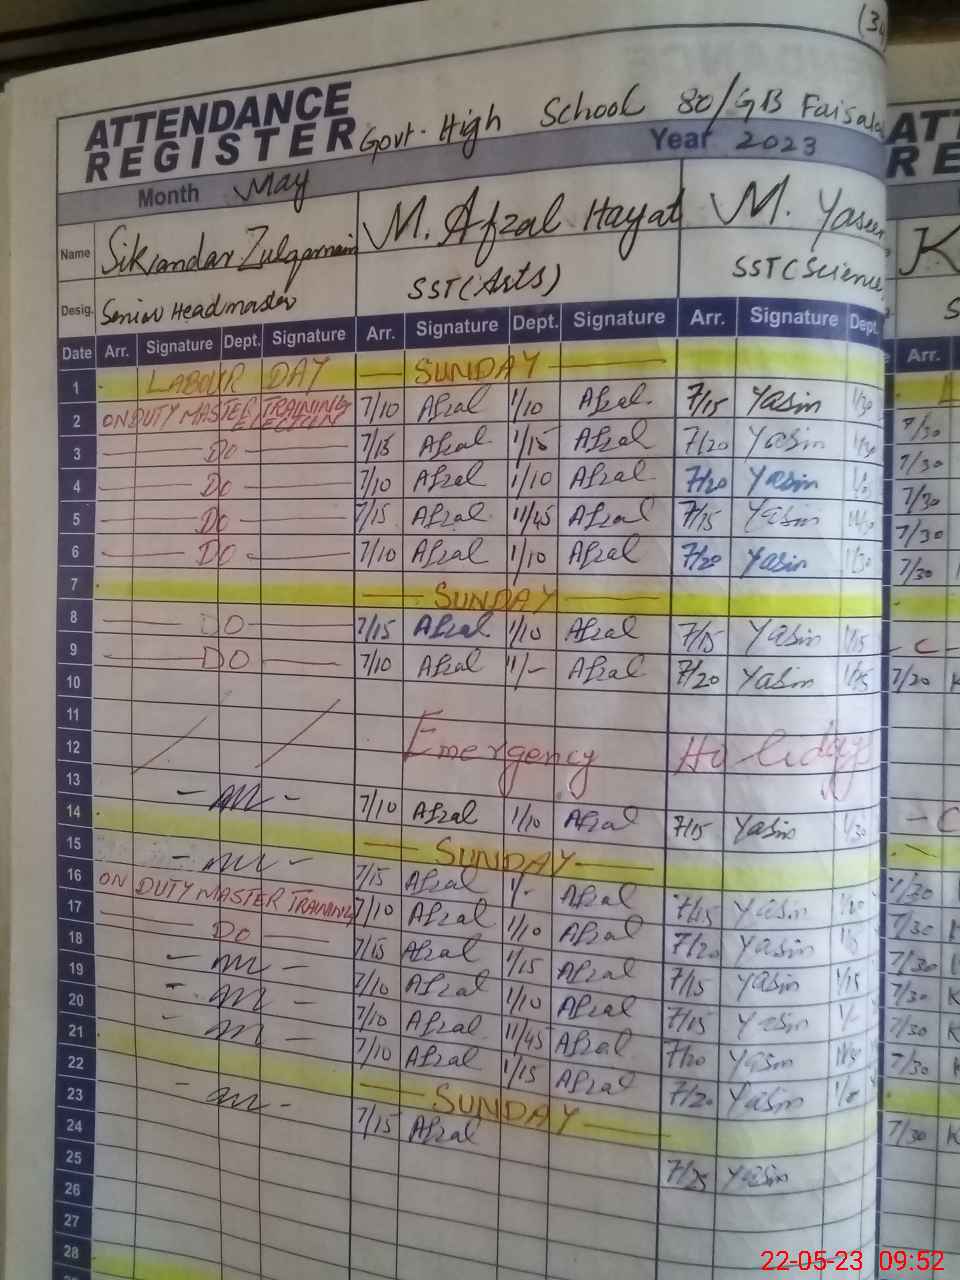 (34
ATTENDANCE REGISTER Govt. High School 80/GB Faisala
Month May Year 2023
Name Sikandar Zulqarnain M. Afzal Hayat M. Yaseen K
Desig. Senior Headmaster SST (Arts) SST (Science S
Date Arr. Signature Dept. Signature Arr. Signature Dept. Signature Arr. Signature Dept. Arr.
1 LABOUR DAY — SUNDAY —
2 ON DUTY MASTER TRAINING 7/10 Afzal 1/10 Afzal 7/15 Yasin 1/30 7/30
3 Do 7/15 Afzal 1/15 Afzal 7/20 Yasin 1/30 7/30
4 Do 7/10 Afzal 1/10 Afzal 7/20 Yasin 7/30
5 Do 7/15 Afzal 11/45 Afzal 7/15 Yasin 7/30
6 Do 7/10 Afzal 1/10 Afzal 7/20 Yasin 1/30 7/30
7 — SUNDAY —
8 DO 7/15 Afzal 1/10 Afzal 7/15 Yasin 1/15 - C -
9 DO 7/10 Afzal 11/- Afzal 7/20 Yasin 7/20 K
10
11
12 Emergency Holiday
13 7/10 Afzal 1/10 Afzal 7/15 Yasin 1/30 - C
14 — SUNDAY —
15 7/15 Afzal 1/- Afzal 7/15 Yasin 7/30
16 ON DUTY MASTER TRAINING 7/10 Afzal 1/10 Afzal 7/20 Yasin 7/30
17 Do 7/15 Afzal 1/15 Afzal 7/15 Yasin 1/15 7/30
18 7/10 Afzal 1/10 Afzal 7/15 Yasin 1/- 7/30 K
19 7/10 Afzal 11/45 Afzal 7/20 Yasin 7/30 K
20 7/10 Afzal 1/15 Afzal 7/20 Yasin 7/30 K
21 — SUNDAY —
22 7/15 Afzal 7/25 Yasin 7/30 K
23
24
25
26
27
28
22-05-23 09:52